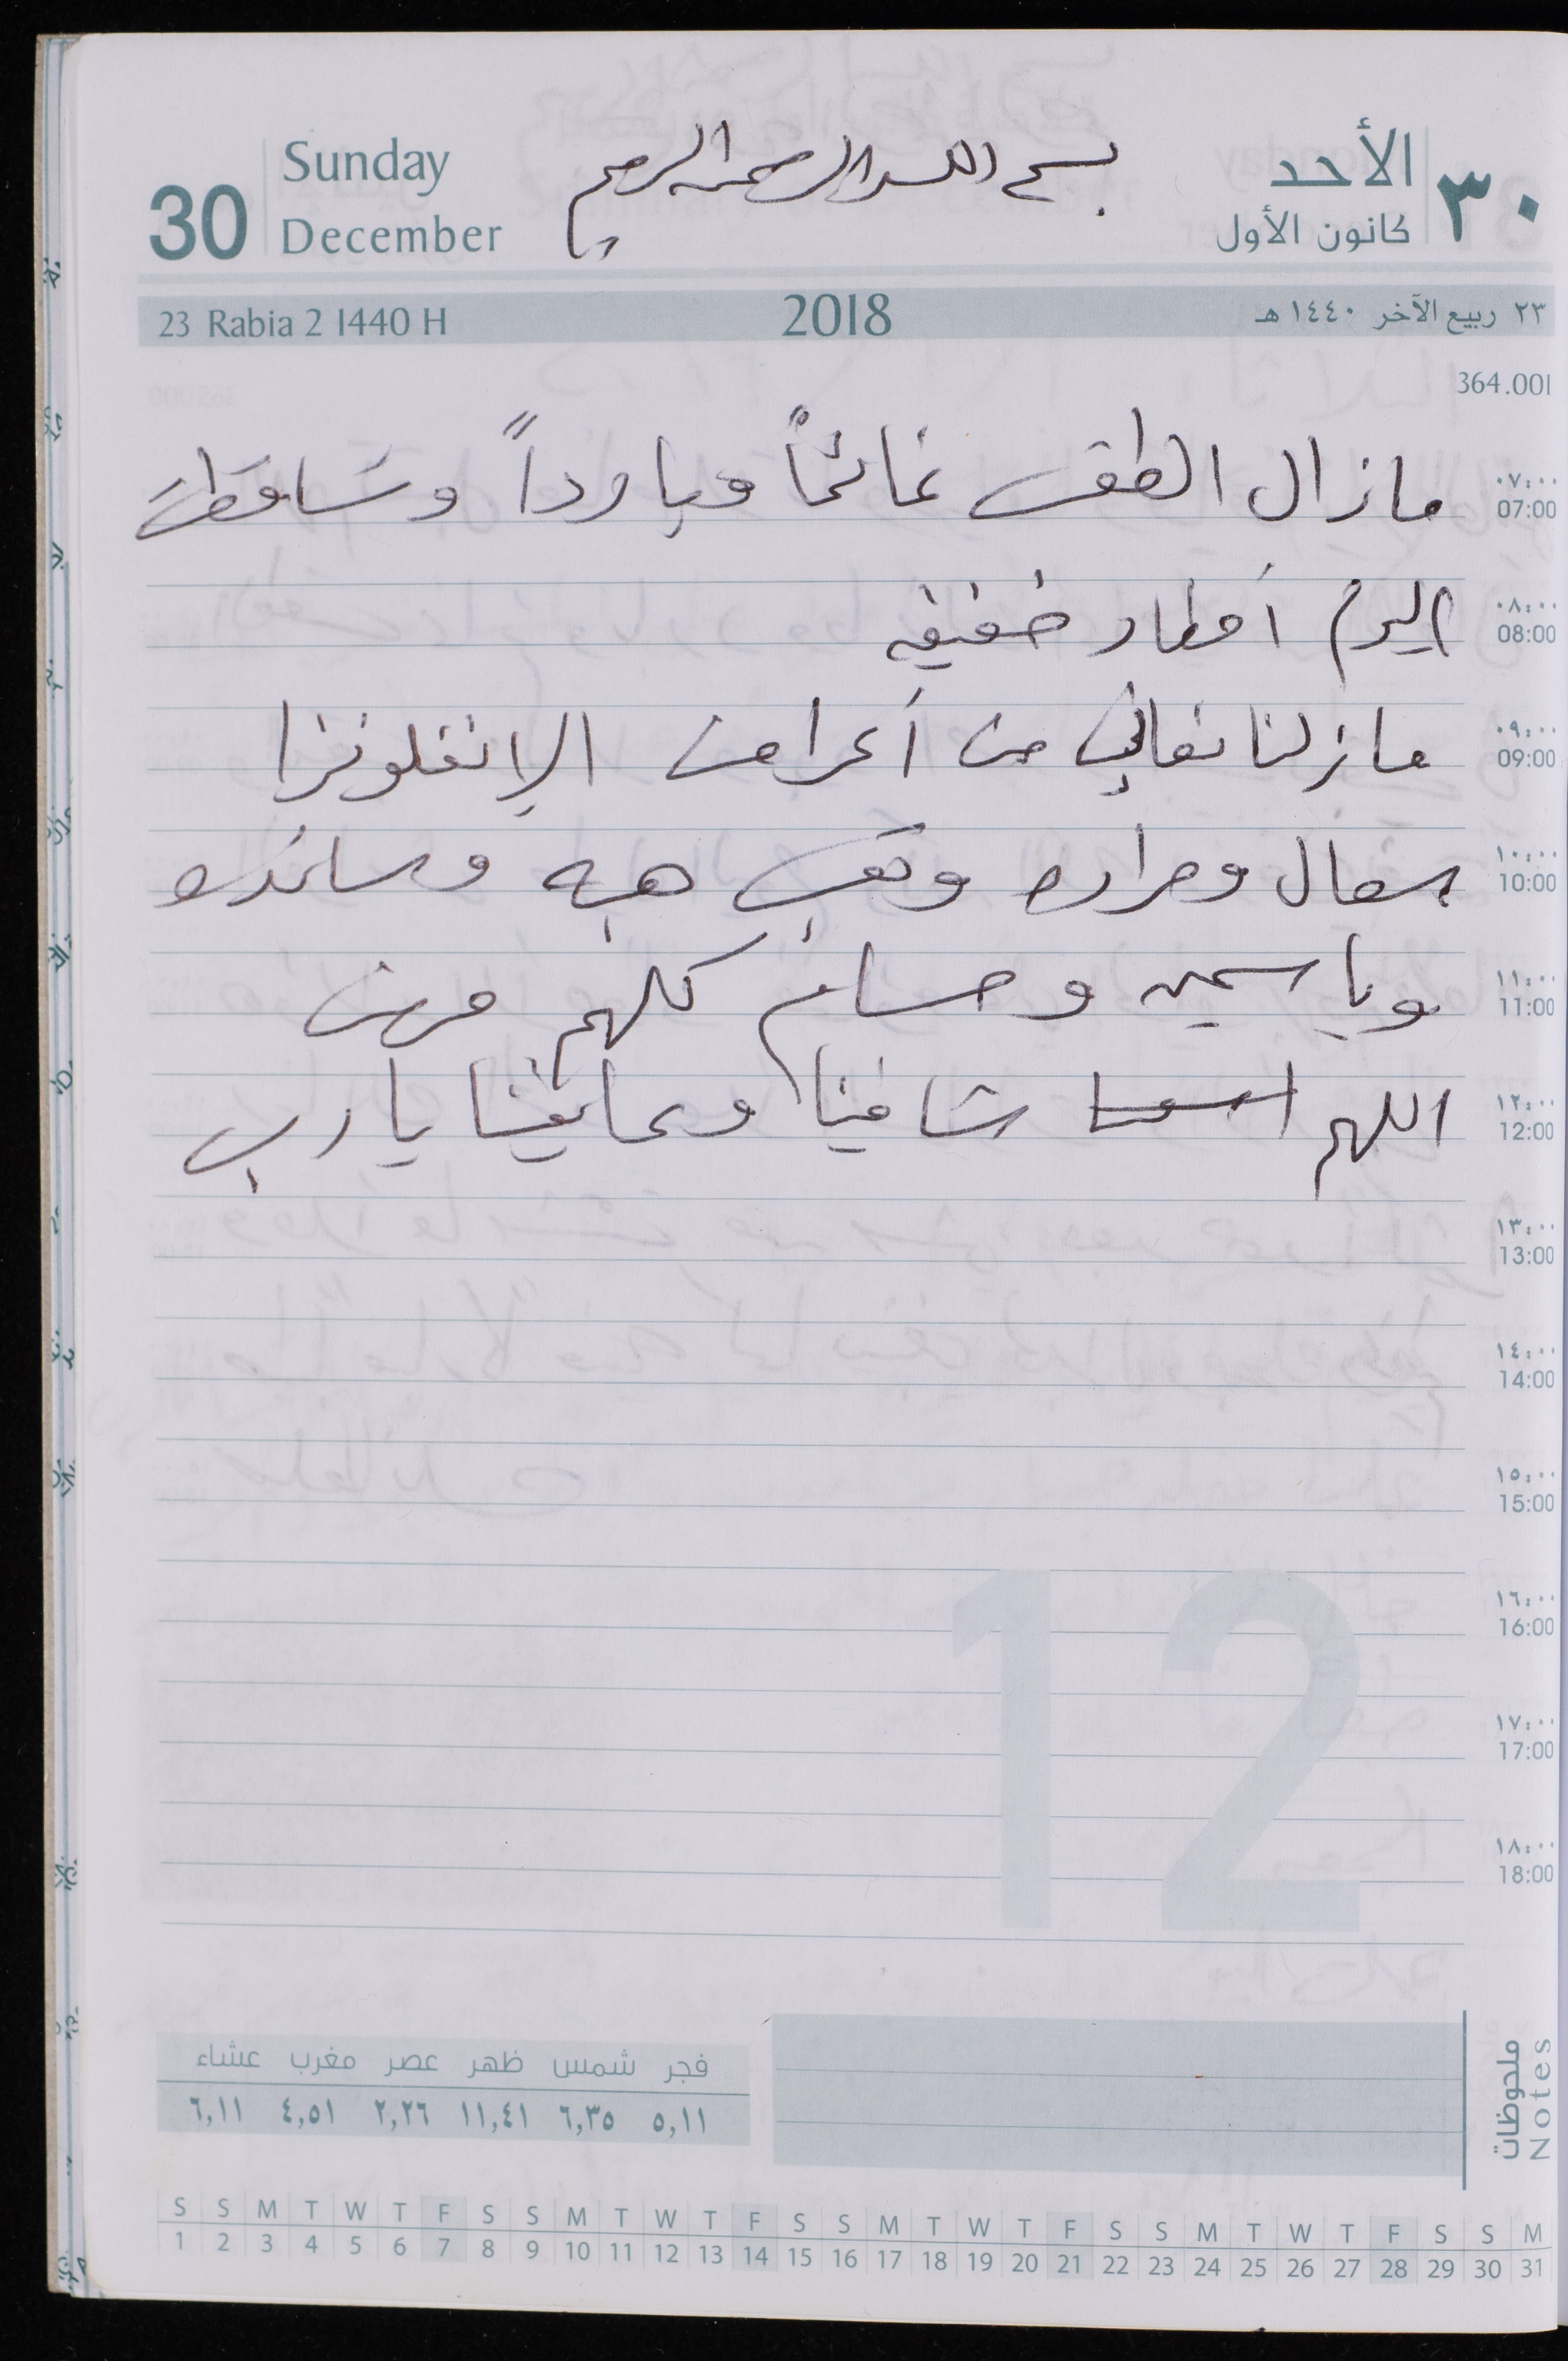 Sunday
30
December
بسم الله الرحمن الرحيم
الأحد
٣٠
كانون الأول
23 Rabia 2 1440 H
2018
٢٣ ربيع الآخر ١٤٤٠ هـ
364.001
مازال الطقس غائماً وبارداً وتساقطت
٠٧:٠٠
07:00
اليوم أمطار خفيفه
٠٨:٠٠
08:00
مازلنا نعاني من أعراض الإنفلونزا
٠٩:٠٠
09:00
سعال وحراره وتعب هبه وساندره
١٠:٠٠
10:00
وياسمين وحسام كلهم مرضى
١١:٠٠
11:00
اللهم شافينا وعافينا يارب
١٢:٠٠
12:00
١٣:٠٠
13:00
١٤:٠٠
14:00
١٥:٠٠
15:00
١٦:٠٠
16:00
١٧:٠٠
17:00
١٨:٠٠
18:00
12
ملحوظات
Notes
فجر شمس ظهر عصر مغرب عشاء
٥,١١ ٦,٣٥ ١١,٤١ ٢,٢٦ ٤,٥١ ٦,١١
S S M T W T F S S M T W T F S S M T W T F S S M T W T F S S M
1 2 3 4 5 6 7 8 9 10 11 12 13 14 15 16 17 18 19 20 21 22 23 24 25 26 27 28 29 30 31